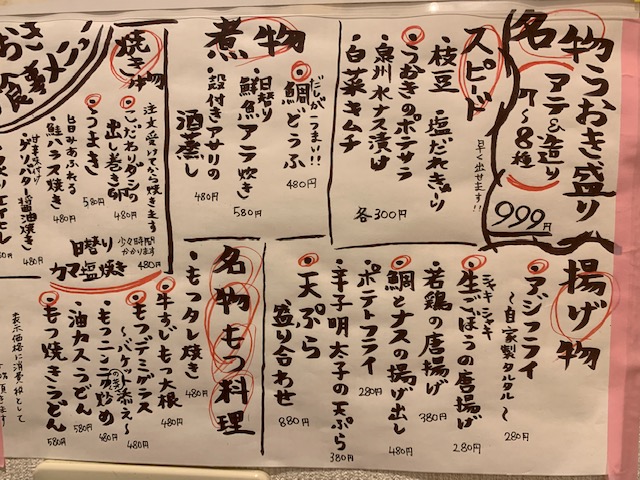 名物うおき盛り
アテ&造り
7〜8種
999円
スピード
早く出せます!!
枝豆
塩だれきゅうり
・うおきのポテサラ
・泉州水ナス漬け
・白菜キムチ
各300円
煮物
だしがうまい!!
・鯛どうふ
480円
・日替り鮮魚アラ炊き
580円
・殻付きアサリの酒蒸し
480円
焼き物
注文受けてから焼き上げます
・こだわりダシの出し巻き卵
480円
・うまき
580円
旨みあふれる
・鮭ハラス焼き
480円
甘辛味付け
・ゲソバター醤油焼き
480円
日替り
カマ塩焼き
少々時間かかります
480円
うおき
食事メニュー
揚げ物
・アジフライ
〜自家製タルタル〜
280円
シャキシャキ
・生ごぼうの唐揚げ
280円
・若鶏の唐揚げ
380円
・鯛とナスの揚げ出し
480円
・ポテトフライ
280円
・辛子明太子の天ぷら
380円
・天ぷら盛り合わせ
880円
名物もつ料理
・もつタレ焼き
480円
・牛すじもつ大根
480円
・もつデミグラス
〜バケット添え〜
480円
・もつニンニクの芽炒め
480円
・油カスうどん
580円
・もつ焼きうどん
580円
表示価格に消費税として